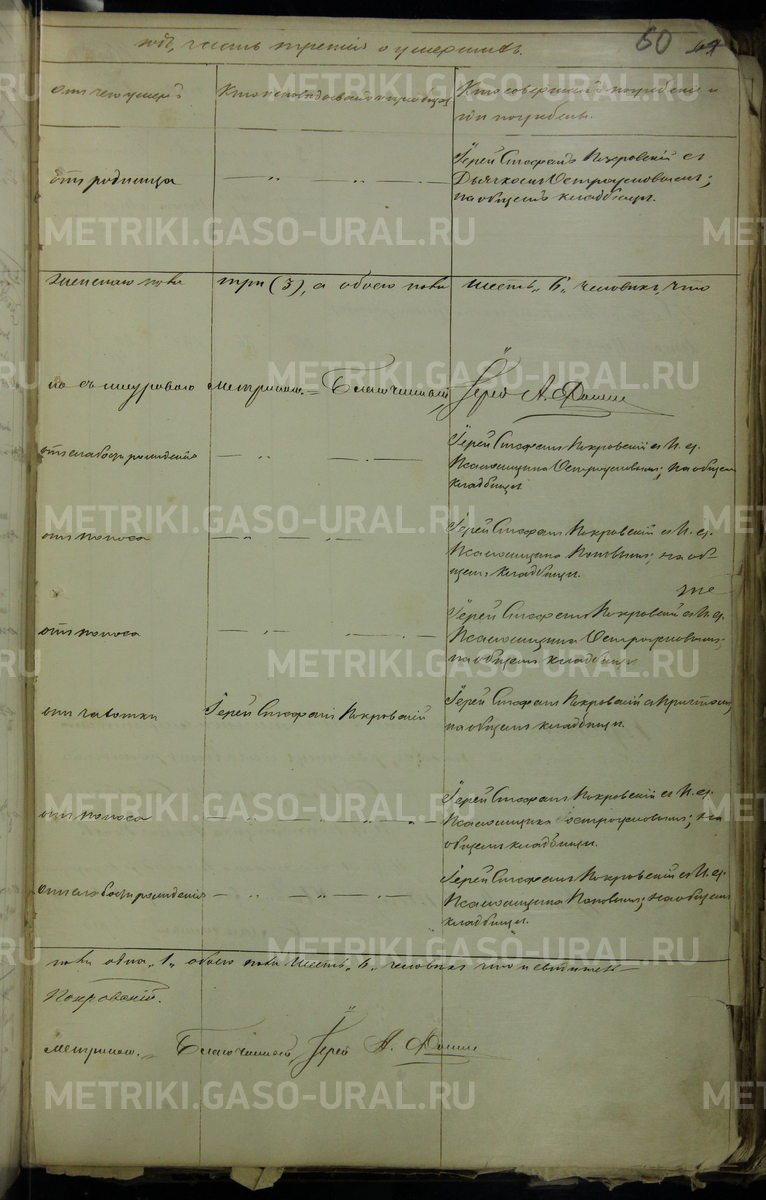 годъ, часть третія о умершихъ.
60
Отъ чего умеръ
Кто исповѣдывалъ и пріобщалъ
Кто совершалъ погребеніе и
гдѣ погребены.
отъ родимца
Іерей Стефанъ Покровскій съ
Дьячкомъ Остроумовымъ;
на общемъ кладбищѣ.
женскаго пола три (3), а обоего пола шесть „6„ человѣкъ, что
метрикою. Благочинный Іерей А.
отъ слабости рожденія
Іерей Стефанъ Покровскій съ И. д.
Псаломщика Остроумовымъ; на общемъ
кладбищѣ
отъ поноса
Іерей Стефанъ Покровскій съ И. д.
Псаломщика Поповымъ; на об-
щемъ кладбищѣ.
отъ поноса
Іерей Стефанъ Покровскій съ И. д.
Псаломщика Остроумовымъ;
на общемъ кладбищѣ
отъ чахотки
Іерей Стефанъ Покровскій
Іерей Стефанъ Покровскій съ причтомъ,
на общемъ кладбищѣ.
отъ поноса
Іерей Стефанъ Покровскій съ И. д.
Псаломщика Остроумовымъ; на
общемъ кладбищѣ.
отъ слабости рожденія
Іерей Стефанъ Покровскій съ И. д.
Псаломщика Поповымъ; на общемъ
кладбищѣ.
пола одна „1„ обоего пола шесть „6„ человѣкъ что и
Покровскій.
метрикою. Благочинный, Іерей А.
METRIKI.GASO-URAL.RU